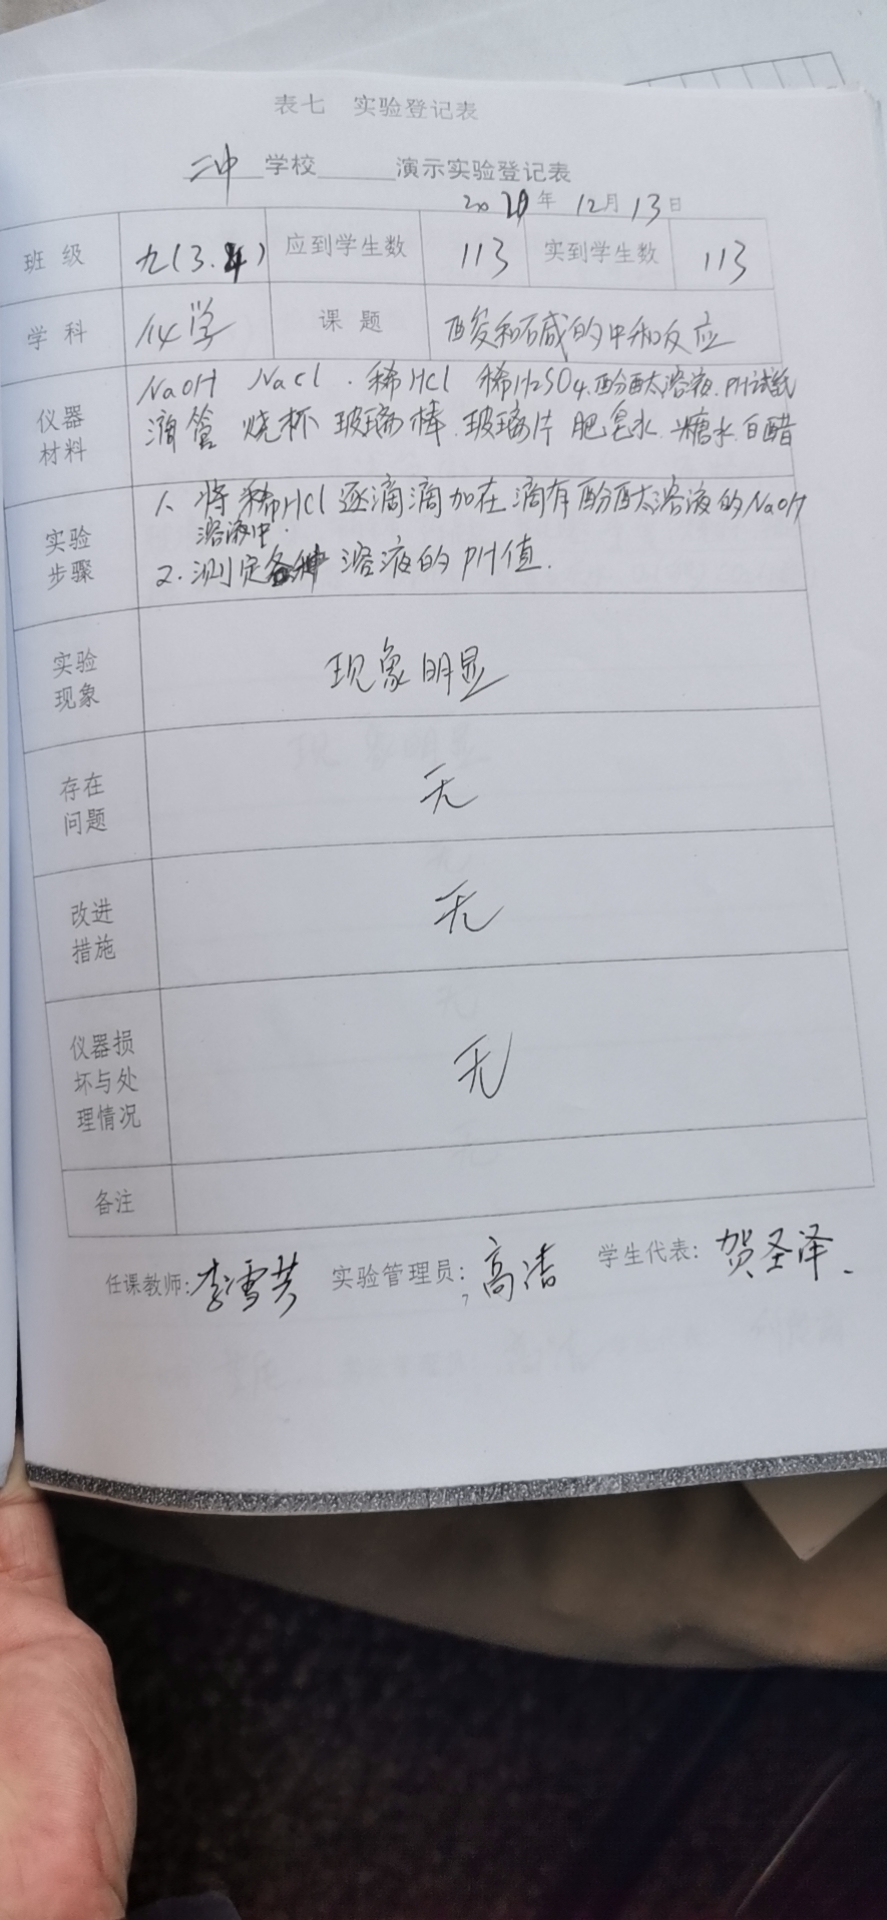 表七 实验登记表
二中学校______演示实验登记表
年12月13日
班级 九(3.4) 应到学生数 113 实到学生数 113
学科 化学 课题 酸和碱的中和反应
仪器材料
NaOH NaCl . 稀HCl 稀H2SO4.酚酞溶液.PH试纸
滴管 烧杯 玻璃棒.玻璃片 肥皂水.糖水.白醋
实验步骤
1. 将稀HCl逐滴滴加在滴有酚酞溶液的NaOH
溶液中.
2.测定各种溶液的PH值.
实验现象 现象明显
存在问题 无
改进措施 无
仪器损坏与处理情况 无
备注
任课教师: 李雪芳 实验管理员: 高洁 学生代表: 贺圣泽.